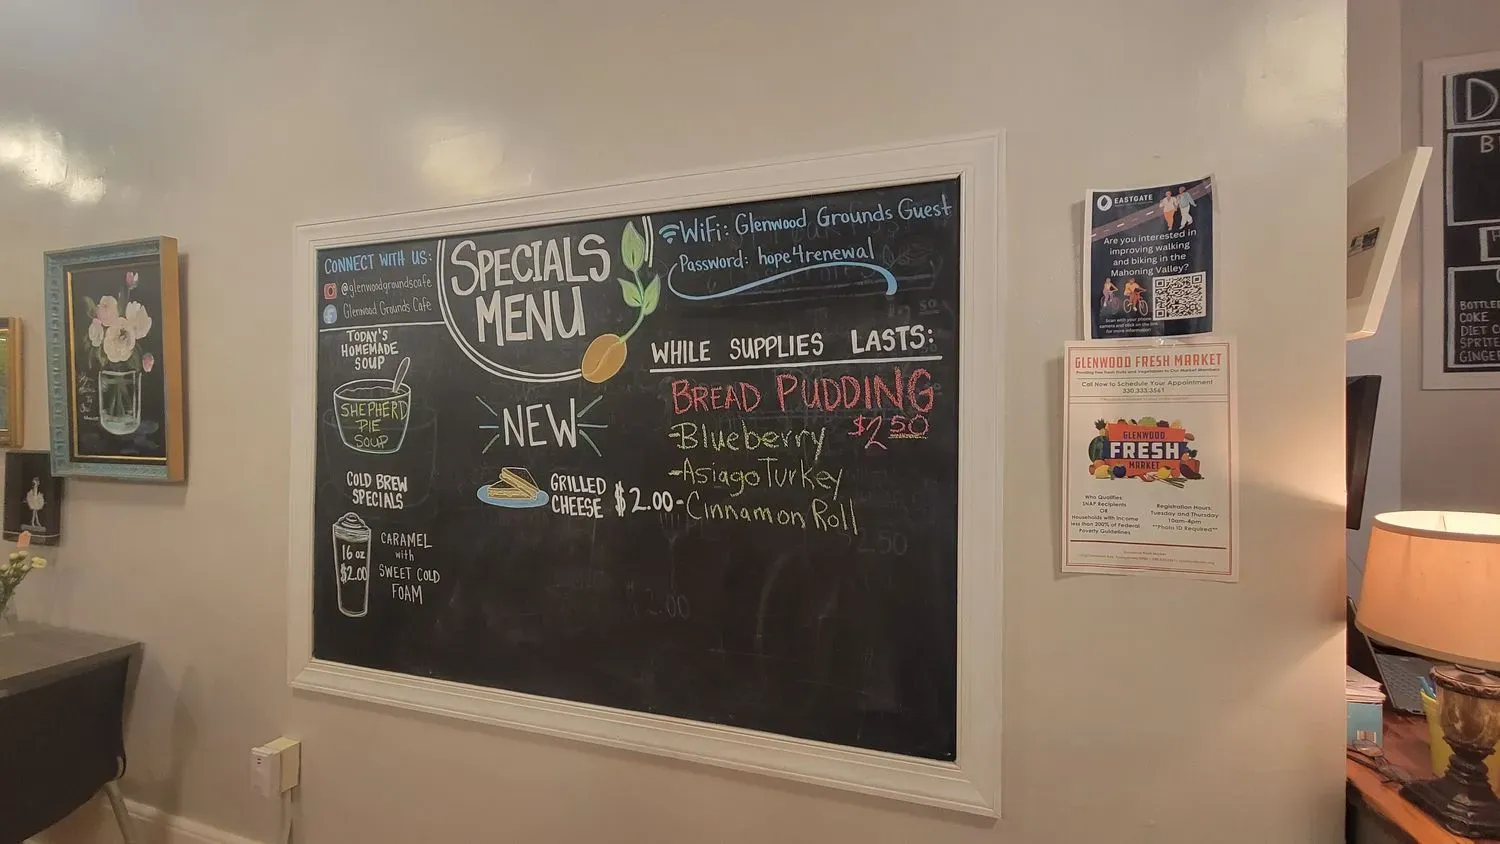 CONNECT WITH US:
@glenwoodgroundscafe
Glenwood Grounds Cafe
SPECIALS
MENU
WiFi: Glenwood Grounds Guest
Password: hope4renewal
TODAY'S
HOMEMADE
SOUP
SHEPHERD
PIE
SOUP
COLD BREW
SPECIALS
16 oz
$2.00
CARAMEL
with
SWEET COLD
FOAM
NEW
GRILLED
CHEESE $2.00
WHILE SUPPLIES LASTS:
BREAD PUDDING
$2.50
-Blueberry
-Asiago Turkey
-Cinnamon Roll
EASTGATE
Are you interested in
improving walking
and biking in the
Mahoning Valley?
Scan with your phone
camera and click on the link
for more information
GLENWOOD FRESH MARKET
Providing Free Fresh Fruits and Vegetables to Our Market Members
Call Now to Schedule Your Appointment
330.333.3561
GLENWOOD
FRESH
MARKET
Who Qualifies:
SNAP Recipients
OR
Households with income
less than 200% of Federal
Poverty Guidelines
Registration Hours:
Tuesday and Thursday
10am-4pm
**Photo ID Required**
D
B
BOTTLE
COKE
DIET C
SPRITE
GINGER